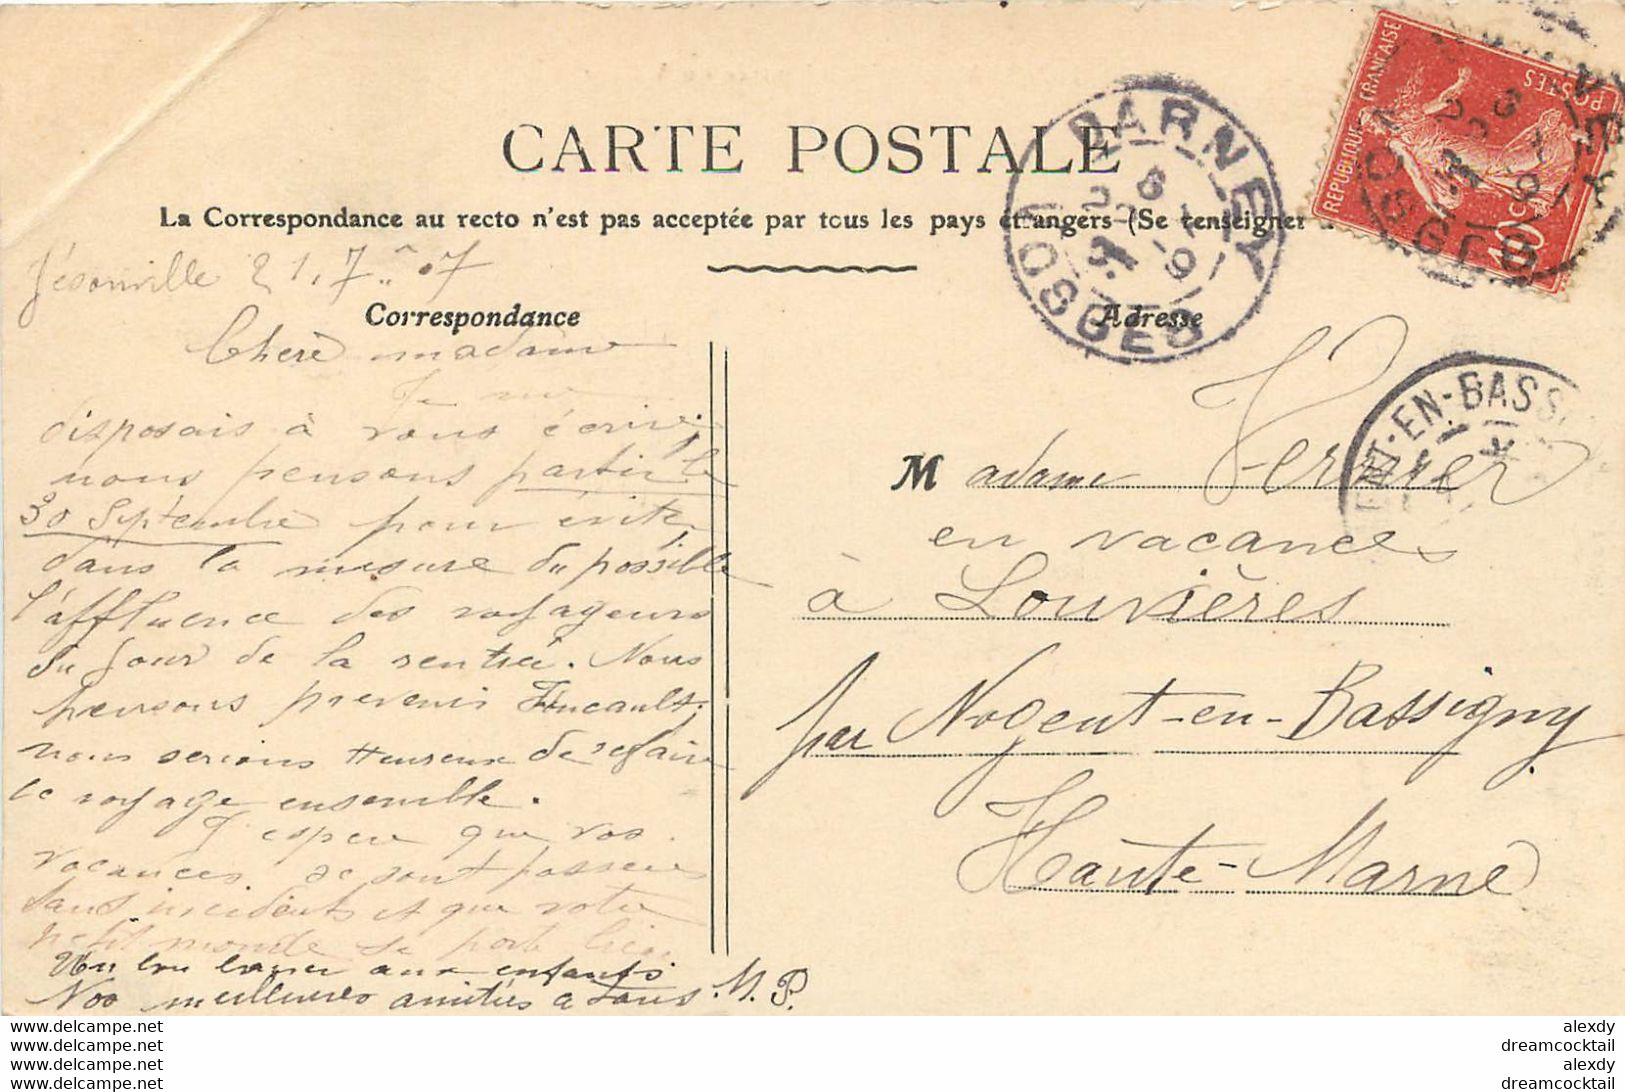 CARTE POSTALE
La Correspondance au recto n'est pas acceptée par tous les pays étrangers (Se renseigner
REPUBLIQUE FRANÇAISE
POSTES
10 c
DARNEY
VOSGES
Jésonville 21.7..07
Correspondance
Adresse
Chère madame
Je me
disposais à vous écrire,
nous pensons partir le
30 Septembre pour éviter
dans la mesure du possible
l'affluence des voyageurs
du jour de la rentrée. Nous
pensons prevenir Foucault,
nous serions heureux de refaire
le voyage ensemble.
J'espère que vos
vacances se sont passées
sans incidents et que votre
petit monde se porte bien.
Un bon baiser aux enfants
Nos meilleures amitiés a tous. M. P.
NT-EN-BASS
Madame Verrier
en vacances
à Louvières
par Nogent-en-Bassigny
Haute-Marne
www.delcampe.net
www.delcampe.net
www.delcampe.net
www.delcampe.net
alexdy
dreamcocktail
alexdy
dreamcocktail